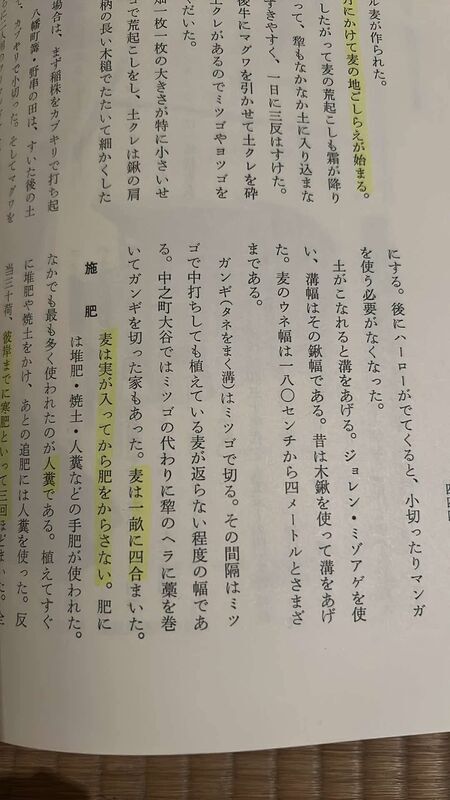 ル麦が作られた。
月にかけて麦の地ごしらえが始まる。
したがって麦の荒起こしも霜が降り
って、犂もなかなか土に入り込まな
すきやすく、一日に三反はすけた。
後牛にマグワを引かせて土クレを砕
土クレがあるのでミツゴやヨツゴを
だいた。
畑一枚一枚の大きさが特に小さいせ
コで荒起こしをし、土クレは鍬の肩
柄の長い木槌でたたいて細かくした
場合は、まず稲株をカブキリで打ち起
八幡町篝・野串の田は、すいた後の土
で、カブキリで小切った。そしてマグワを
にする。後にハーローがでてくると、小切ったりマンガ
を使う必要がなくなった。
土がこなれると溝をあげる。ジョレン・ミゾアゲを使
い、溝幅はその鍬幅である。昔は木鍬を使って溝をあげ
た。麦のウネ幅は一八〇センチから四メートルとさまざ
まである。
ガンギ(タネをまく溝)はミツゴで切る。その間隔はミツ
ゴで中打ちしても植えている麦が返らない程度の幅であ
る。中之町大谷ではミツゴの代わりに犂のヘラに藁を巻
いてガンギを切った家もあった。麦は一畝に四合まいた。
施肥
麦は実が入ってから肥をからさない。肥に
は堆肥・焼土・人糞などの手肥が使われた。
なかでも最も多く使われたのが人糞である。植えてすぐ
に堆肥や焼土をかけ、あとの追肥には人糞を使った。反
当三十荷、彼岸までに寒肥といって三回ほどまいた。全